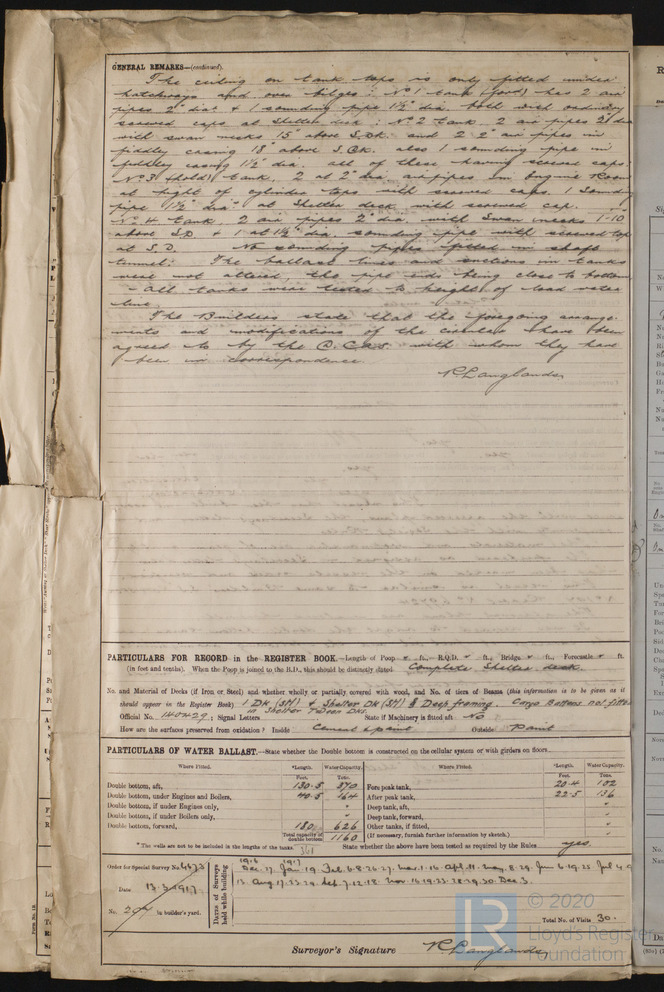 GENERAL REMARKS—(continued).
The ceiling on tank tops is only fitted under
hatchways and over bilges: No 1 tank (ford) has 2 air
pipes 2" dia. & 1 sounding pipe 1½" dia. both with ordinary
screwed caps at Shelter deck; No 2 tank. 2 air pipes 2" dia
with swan necks 15" above S.Dk. and 2 2" air pipes in
fiddly casing 18" above S.Dk. also 1 sounding pipe in
fiddley casing 1½" dia. all of these having screwed caps:
No 3 (hold) tank, 2 at 2" dia air pipes in Engine Room
at hight of cylinder tops with screwed caps. 1 Sounding
pipe 1½" dia" at Shelter deck with screwed cap.
No 4 tank, 2 air pipes 2" dia. with Swan necks 1-10
above S.D & 1 at 1½" dia. sounding pipe with screwed top
at S.D. No sounding pipes fitted in shaft
tunnel: The ballast lines and suctions in tanks
were not altered, the pipe ends being close to bottom
- All tanks were tested to height of load water
line.
The Builders state that the foregoing arrange-
ments and modifications of the circulars have been
agreed to by the with whom they have
been in correspondence
R Langlands
PARTICULARS FOR RECORD in the REGISTER BOOK.—Length of Poop ft., R.Q.D. ft., Bridge ft., Forecastle ft.
(in feet and tenths). When the Poop is joined to the R.D., this should be distinctly stated Complete Shelter deck.
No. and Material of Decks (if Iron or Steel) and whether wholly or partially covered with wood, and No. of tiers of Beams (this information is to be given as it
should appear in the Register Book) 1 DK (Stl) & Shelter DK (Stl) & Deep framing. Cargo Battens not fitted
in Shelter Tween Dks.
Official No. 140429; Signal Letters State if Machinery is fitted aft No
How are the surfaces preserved from oxidation? Inside Cement & paint Outside Paint
PARTICULARS OF WATER BALLAST.—State whether the Double bottom is constructed on the cellular system or with girders on floors
Where Fitted. *Length. Water Capacity. Where Fitted. *Length. Water Capacity.
Feet. Tons. Feet. Tons.
Double bottom, aft, 130.5 370 Fore peak tank, 20.4 102
Double bottom, under Engines and Boilers, 40.5 164 After peak tank, 22.5 136
Double bottom, if under Engines only, " Deep tank, aft, "
Double bottom, if under Boilers only, " Deep tank, forward, "
Double bottom, forward, 180 626 Other tanks, if fitted, "
Total capacity of double bottom 1160 (If necessary, furnish further information by sketch.)
* The wells are not to be included in the lengths of the tanks. State whether the above have been tested as required by the Rules yes.
Order for Special Survey No. 4673
Date 13.3.1917
No. 207 in builder's yard.
Dates of Surveys held while building
1916 1917
Dec. 17 Jan 19 Feb 6.8.26.27. Mar. 1.16 Apl. 11. May. 8.29. Jun 6.19.25 Jul 4.9
13. Aug 17.23.29. Sep. 7.12.18. Nov 16.19.23.28.29.30. Dec 3.
Total No. of Visits 30.
Surveyor's Signature R Langlands
Form No. 1B
LR
© 2020
Lloyd's Register
Foundation